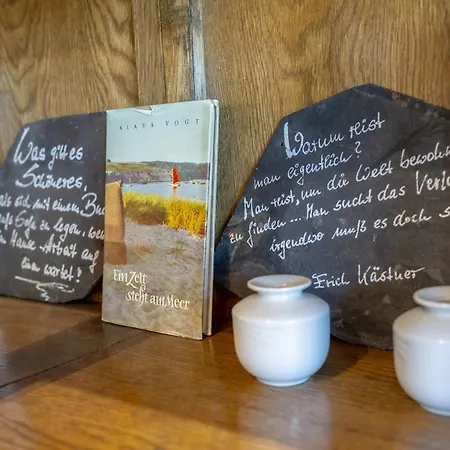 Was gibt es
Schöneres,
als sich mit einem Buch
aufs Sofa zu legen, wenn
im Hause Arbeit auf
einen wartet?
KLAUS VOGT
Ein Zelt
steht am Meer
Warum reist
man eigentlich?
Man reist, um die Welt bewohn
zu finden ... Man sucht das Verlo
irgendwo muß es doch s
Erich Kästner